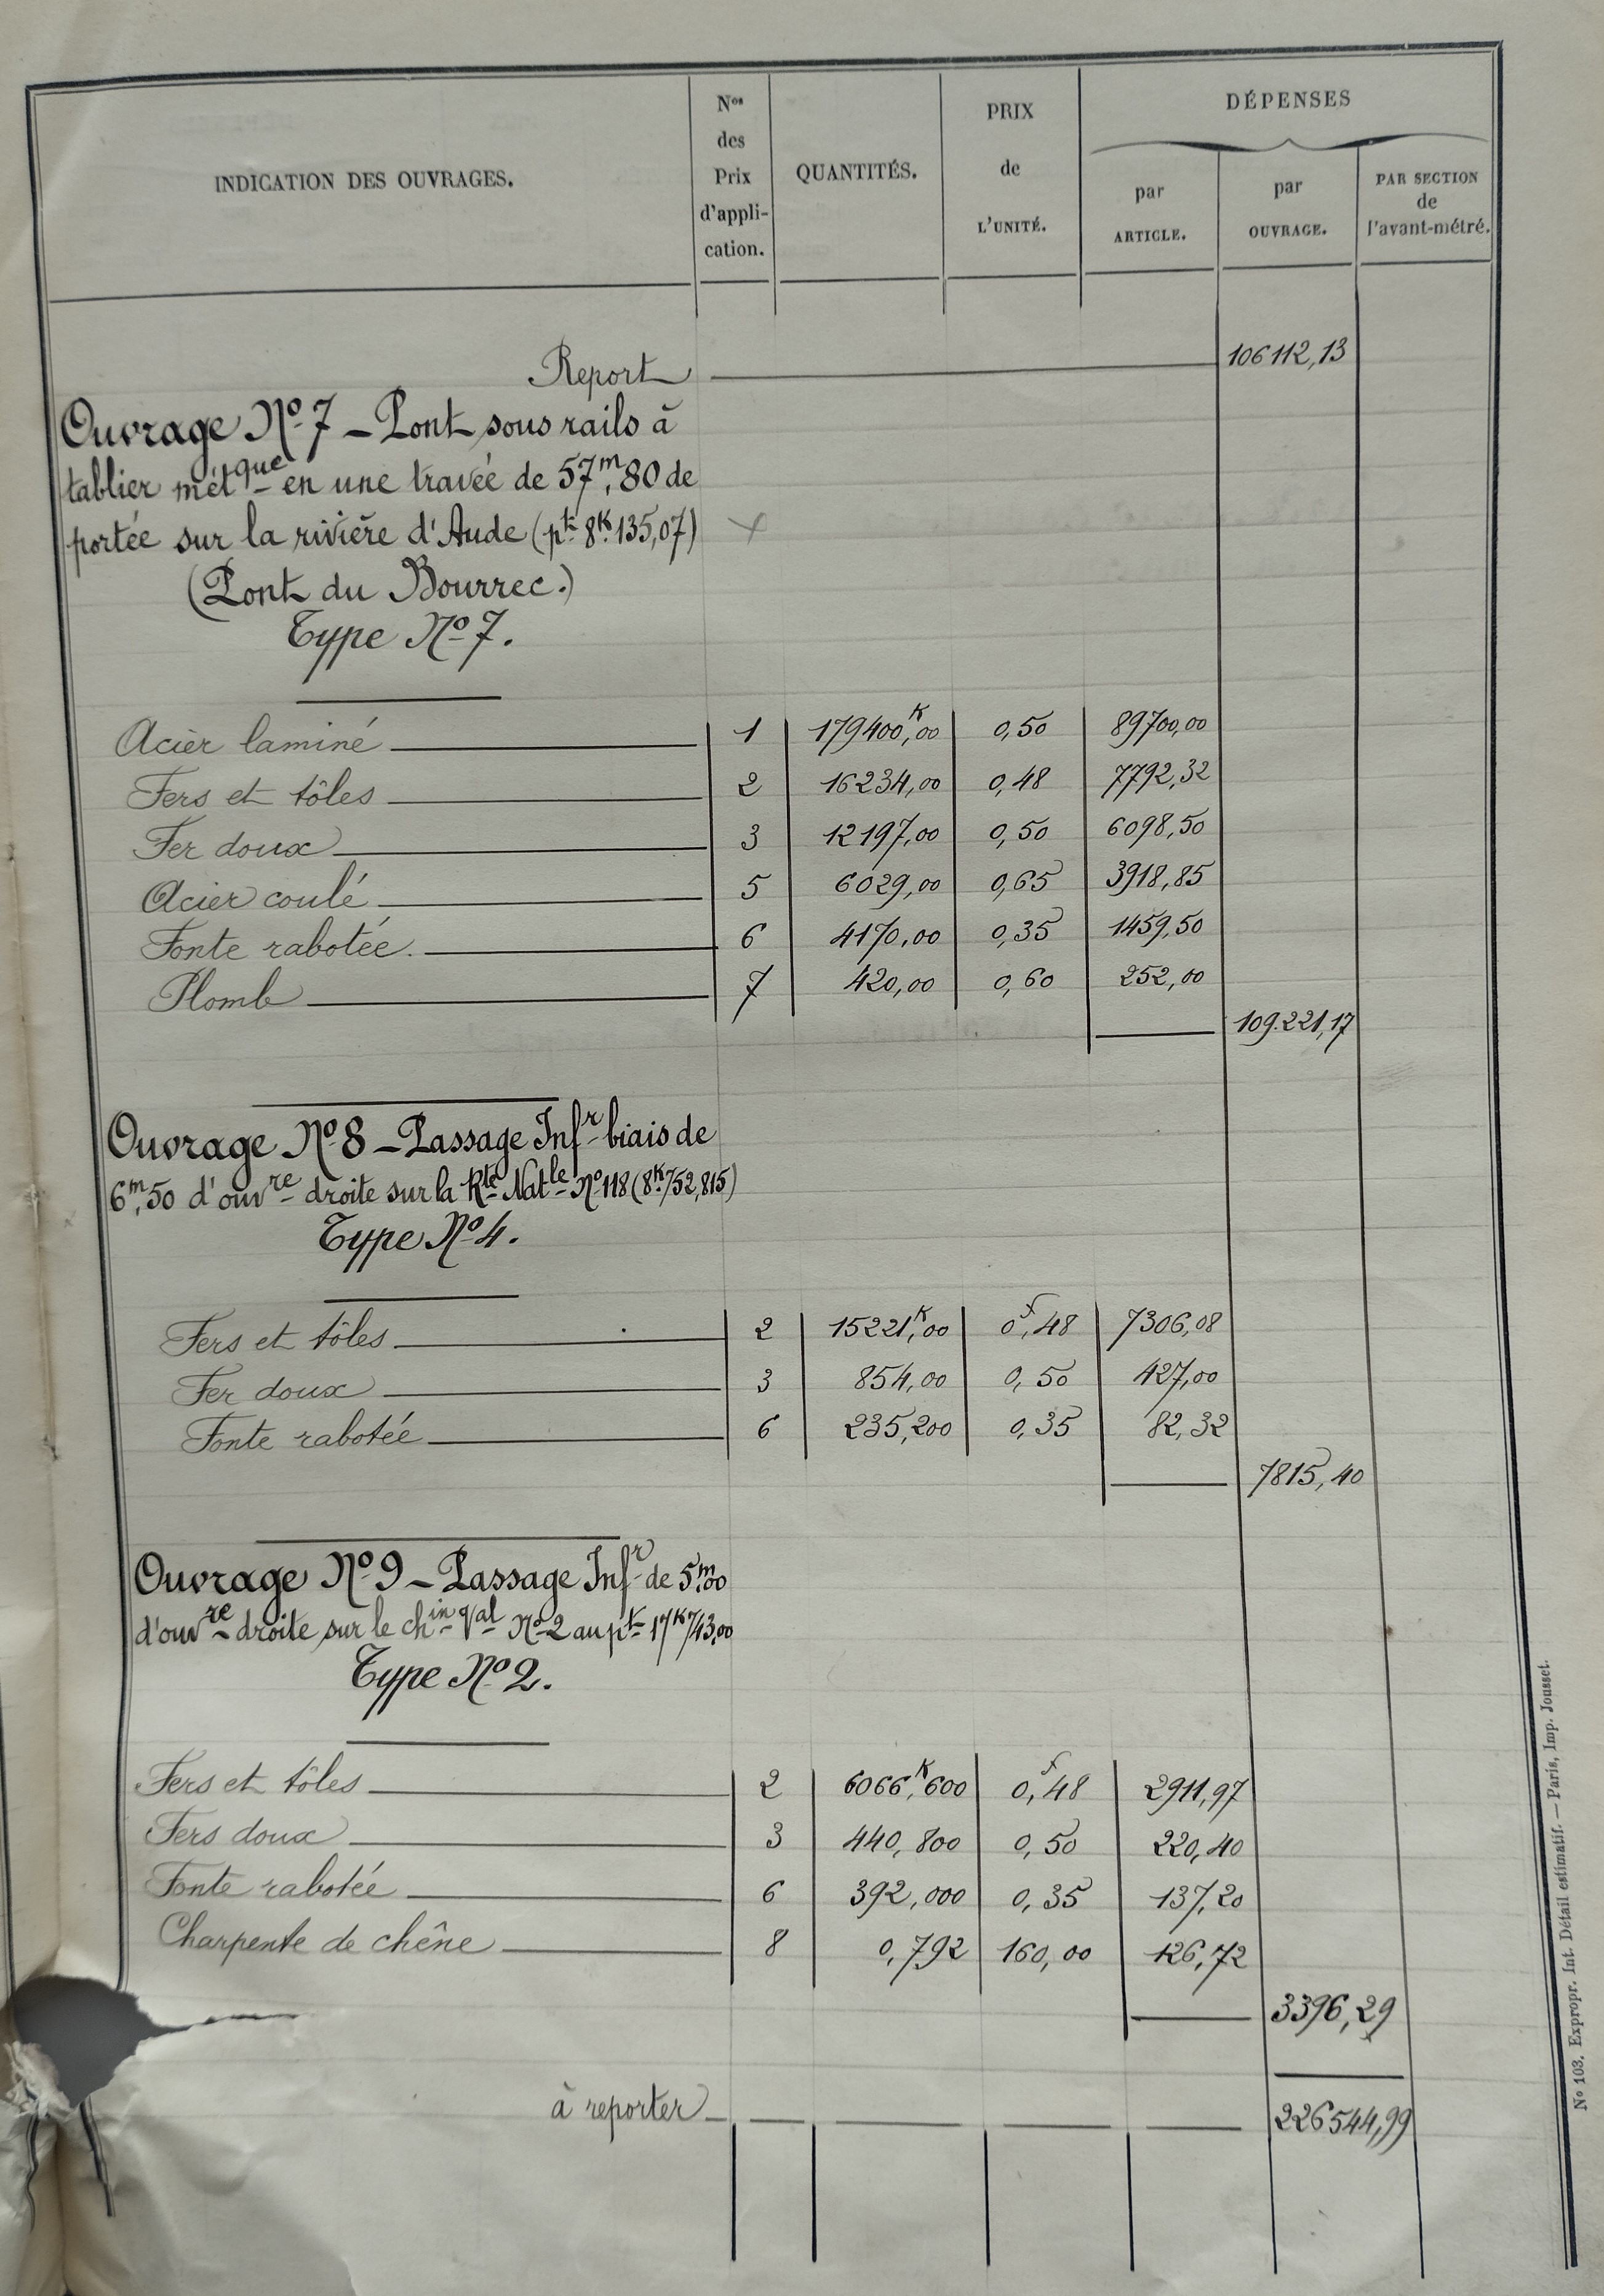 INDICATION DES OUVRAGES.
Nos des Prix d'appli-cation.
QUANTITÉS.
PRIX de L'UNITÉ.
DÉPENSES
par ARTICLE.
par OUVRAGE.
PAR SECTION de l'avant-métré.
Report 106112,13
Ouvrage No 7 – Pont sous rails à
tablier métque en une travée de 57m,80 de
portée sur la rivière d'Aude (pt 8K.135,07)
(Pont du Bourrec.)
Type No 7.
Acier laminé 1 179400K,00 0,50 89700,00
Fers et tôles 2 16234,00 0,48 7792,32
Fer doux 3 12197,00 0,50 6098,50
Acier coulé 5 6029,00 0,65 3918,85
Fonte rabotée. 6 4170,00 0,35 1459,50
Plomb 7 420,00 0,60 252,00
109.221,17
Ouvrage No 8 – Passage Infr biais de
6m,50 d'ouvre droite sur la Rte Natle No 118 (8K.752,815)
Type No 4.
Fers et tôles 2 15221K,00 0f,48 7306,08
Fer doux 3 854,00 0,50 427,00
Fonte rabotée 6 235,200 0,35 82,32
7815,40
Ouvrage No 9 – Passage Infr de 5m,00
d'ouvre droite sur le chin Val No 2 au pt 17K743,00
Type No 2.
Fers et tôles 2 6066K,600 0f,48 2911,97
Fers doux 3 440,800 0,50 220,40
Fonte rabotée 6 392,000 0,35 137,20
Charpente de chêne 8 0,792 160,00 126,72
3396,29
à reporter 226544,99
No 103. Expropr. Int. Détail estimatif. — Paris, Imp. Jousset.